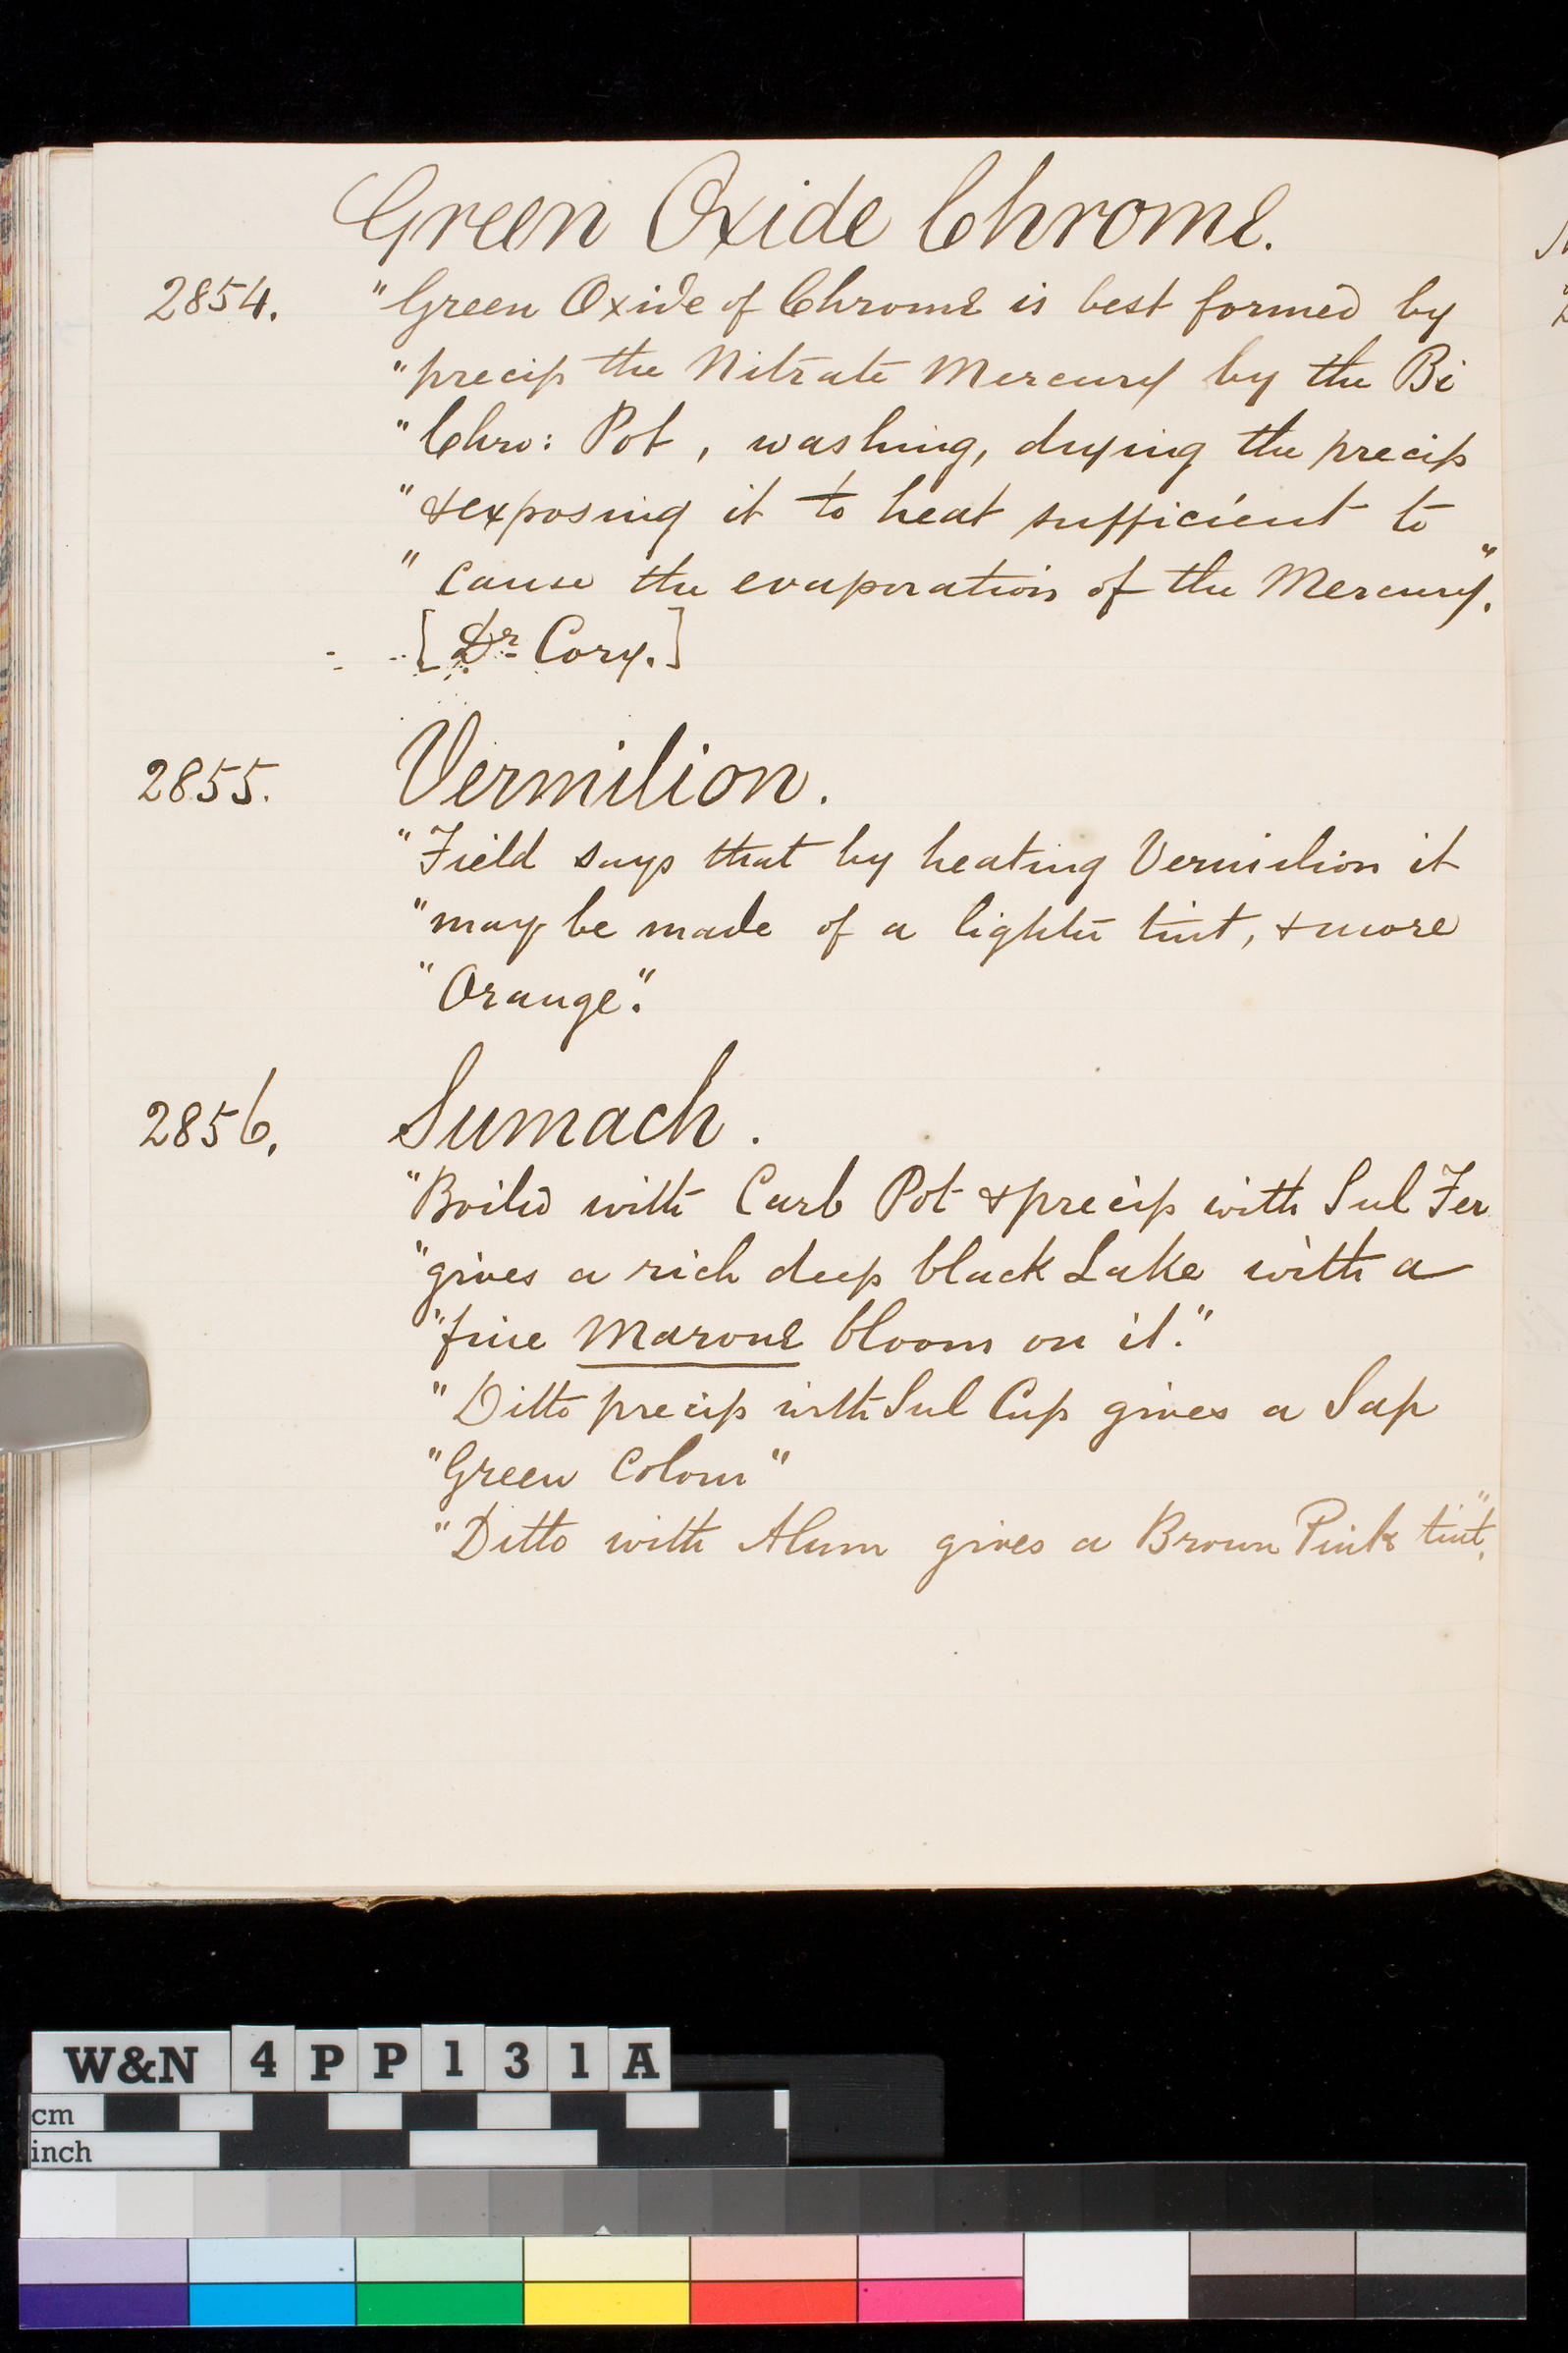 Green Oxide Chrome.
2854. "Green Oxide of Chrome is best formed by
"precip the Nitrate Mercury by the Bi
"Chro: Pot, washing, drying the precip
"& exposing it to heat sufficient to
"cause the evaporation of the Mercury."
[Dr Cory.]
2855. Vermilion.
"Field says that by heating Vermilion it
"may be made of a lighter tint, & more
"Orange."
2856. Sumach.
"Boiled with Carb Pot & precip with Sul Fer
"gives a rich deep black Lake with a
"fine Marone bloom on it."
"Ditto precip with Sul Cup gives a Sap
"Green Colour"
"Ditto with Alum gives a Brown Pink tint."
W&N 4PP131A
cm
inch